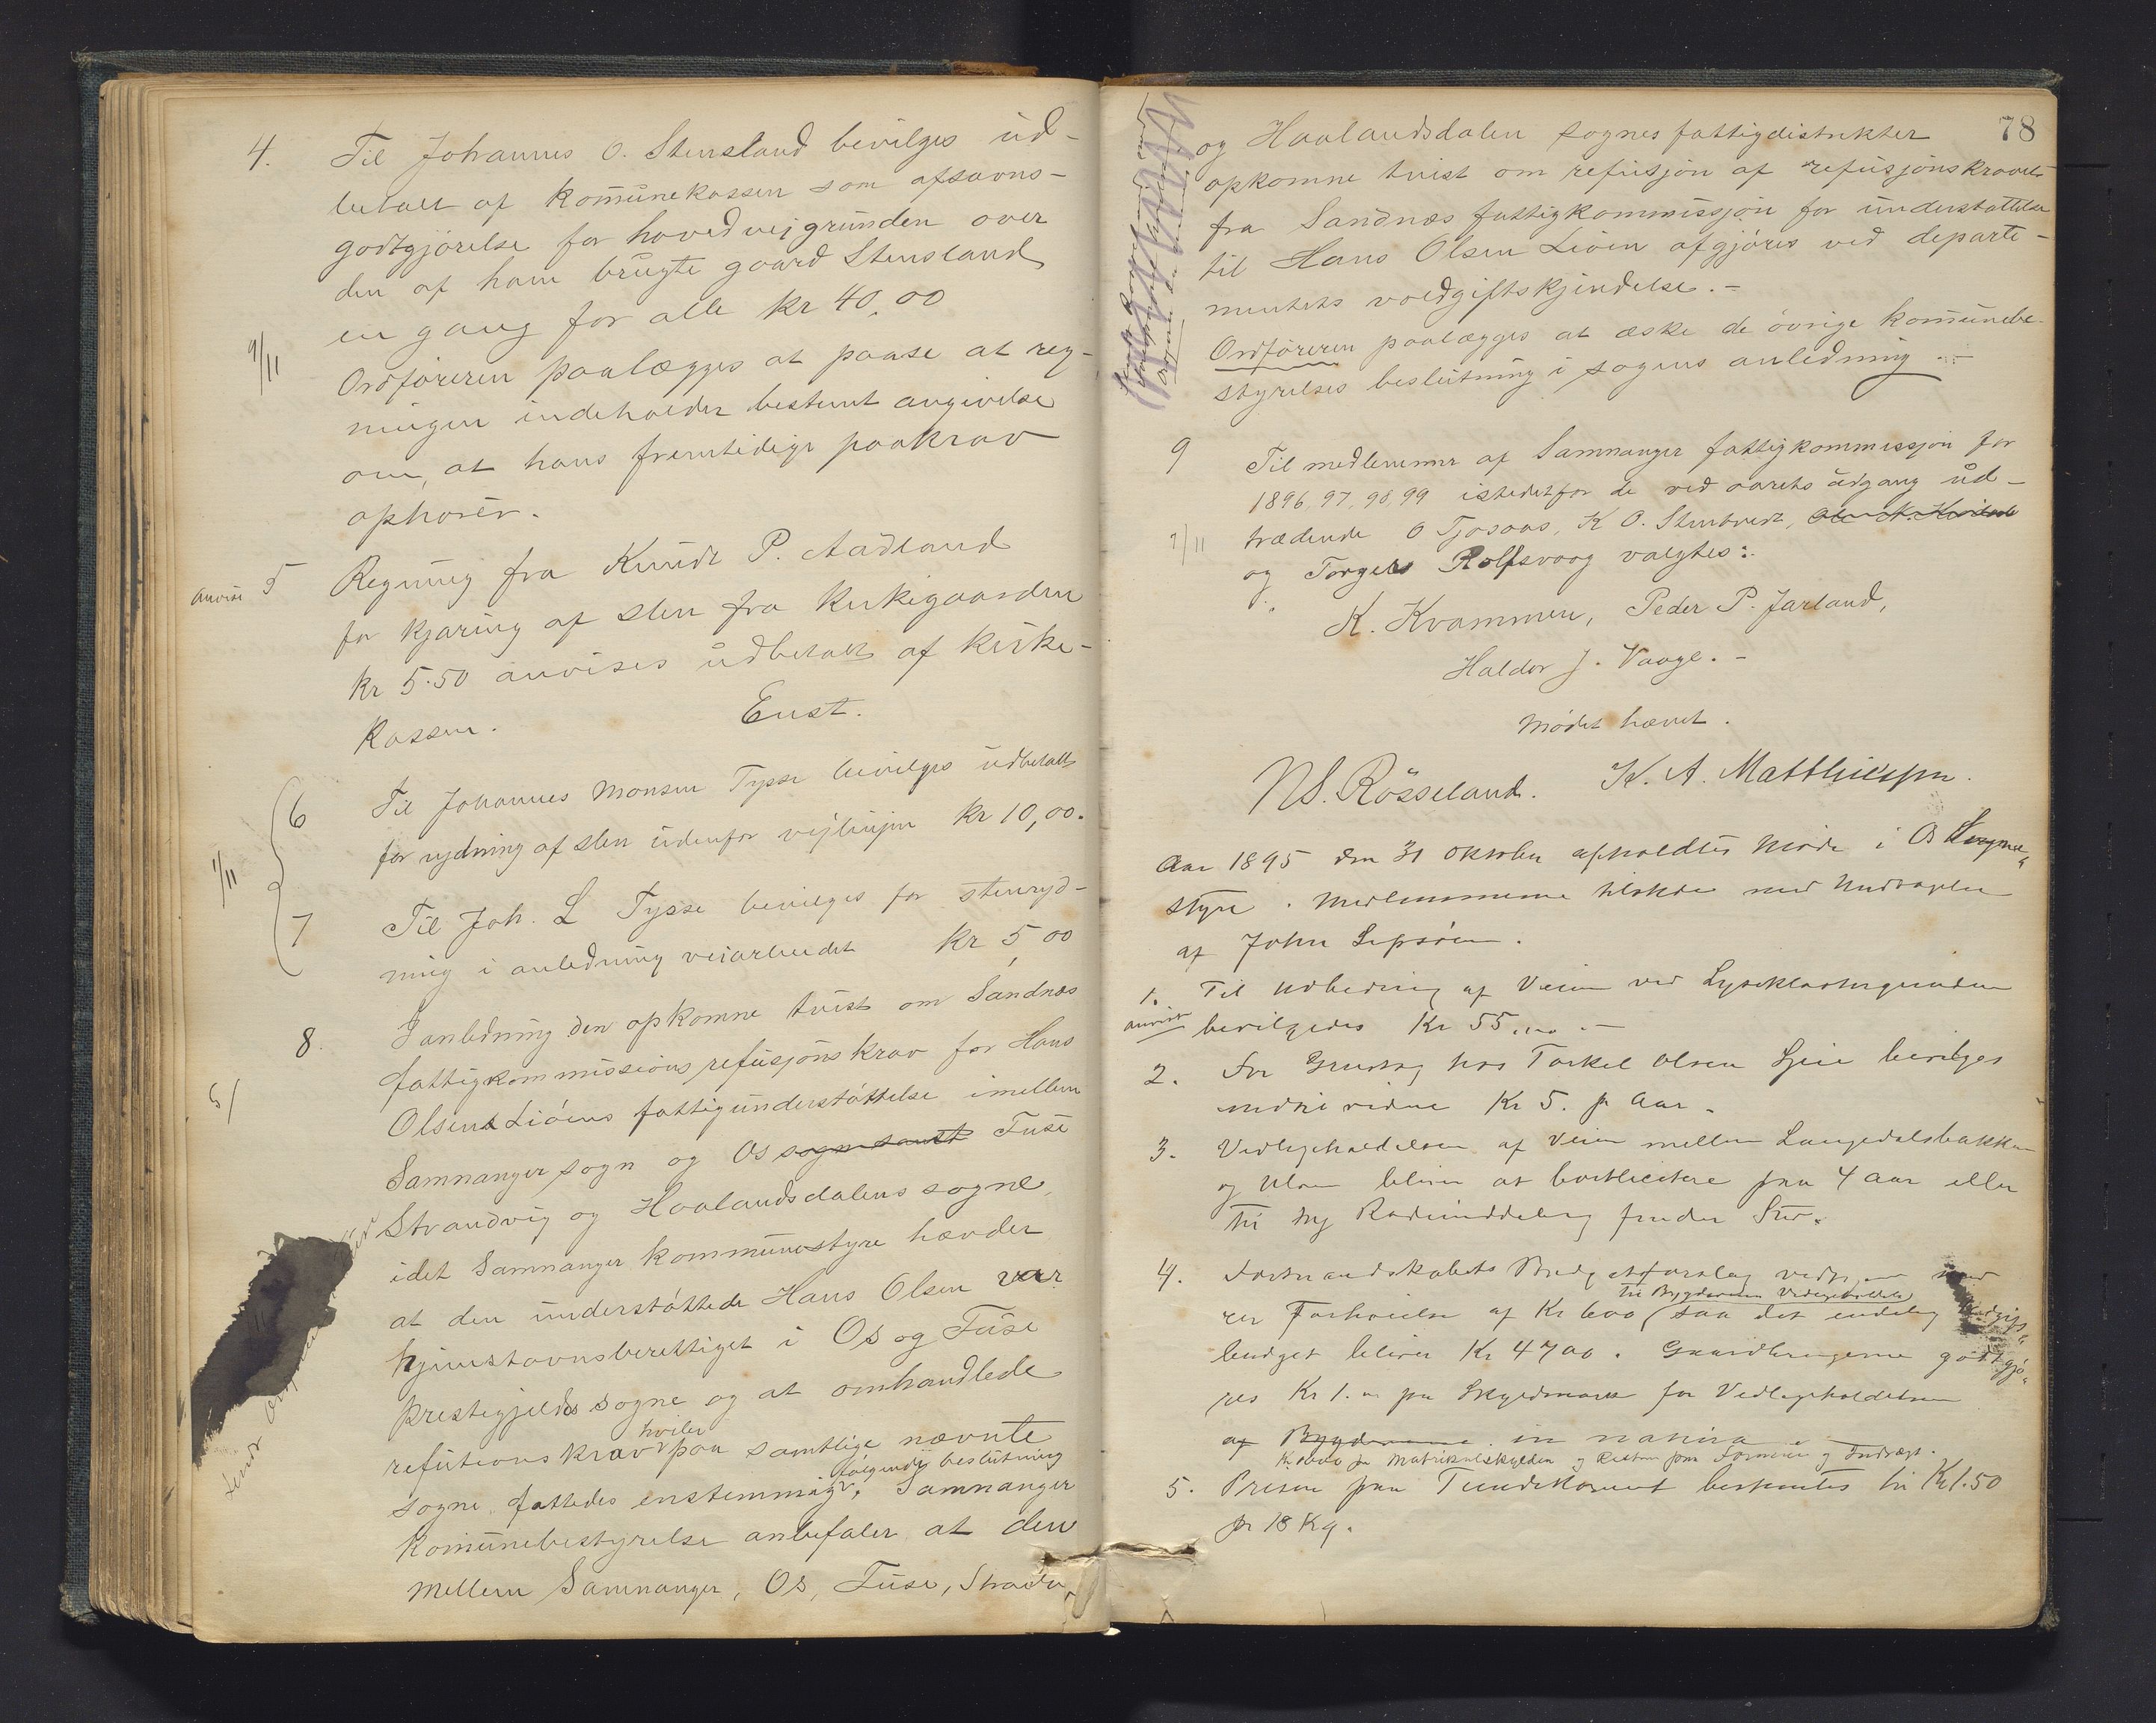 4. Til Johannes O. Stensland bevilges ud-
betalt af komunekassen som afsavns-
godtgjörelse for hovedveigrunden over
den af ham brugte gaard Stensland
en gang for alle kr 40,00
9/11
Ordföreren paalægges at paase at reg-
ningen indeholder bestemt angivelse
om, at hans fremtidige paakrav
ophorer.
anvist 5 Regning fra Knudt P. Aadland
for kjøring af sten fra Kirkegaarden
kr 5.50 anvises udbetalt af kirke-
kassen. Enst.
6 Til Johannes Monsen Tysse bevilges udbetalt
for rydning af sten udenfor vejlinjen kr 10,00.
1/11
7 Til Joh. L Tysse bevilges for stenryd-
ning i anledning veiarbeidet kr 5,00
8. I anledning den opkomne tvist om Sandnæs
fattigkommissions refusjons krav for Hans
5/
Olsens Liöens fattigunderstöttelse imellem
Samnanger sogn og Os sogn samt Fuse
Strandvig og Haalandsdalens sogne,
idet Samnanger kommunestyre hævder
at den understöttede Hans Olsen var
hjemstavnsberettiget i Os og Fuse
prestegjelds sogne og at omhandlede
hviler
refutions krav paa samtlige nævnte
følgende beslutning
sogne, fattedes enstemmig: Samnanger
komunebestyrelse anbefaler at den
mellem Samnanger, Os, Fuse, Strandv.
78
og Haalandsdalen sognes fattigdistrikter
opkomne tvist om refusjon af refusjonskravet
fra Sandnæs fattigkommissjon for understøttelse
til Hans Olsen Liöen afgjöres ved departe-
mentets voldgiftskjendelse.-
Ordföreren paalægges at æske de övrige komunebe-
styrelses beslutning i sagens anledning.-
9 Til medlemmer af Samnanger fattigkommissjon for
1896, 97, 98, 99 istedetfor de ved aarets udgang ud-
7/11
trædende O Tjosaas, K O. Stenbredt,
og Torgels Rolfsvaag valgtes:
K. Kvammen, Peder P. Jarland,
Haldor J. Vaage.-
Mödet hævet.
N S. Rösseland. K. A. Matthiessen.
Aar 1895 den 31 oktober afholdtes Møde i Os Herreds
styre. Medlemmerne tilstede med Undtagelse
af John Lepsöen.
1. Til Udbedring af Veien ved Lyseklostergrunden
anvist bevilgedes Kr 55
2. For Grustag hos Torkel Olsen Lyse bevilges
indtil videre Kr 5. pr Aar.
3. Vedligeholdelsen af Veien mellem Langedalsbakken
og Ulven bliver at bortlicitere paa 4 Aar eller
til ny Rodeinddeling finder Sted.
4. Formandskabets Budgetforslag vedtages med
til Bygdeveienes Vedligeholdelse
en Forhøielse af Kr 600 (saa det endelig Udgifts-
budget bliver Kr 4700. Gaardbrugerne godtgjö-
res Kr 1. pr Skyldmark for Vedligeholdelsen
af Bygdeveiene in natura
pr Matrikulskylden og Resten paa Formue og Indtægt.
5. Prisen paa Tiendekornet bestemtes til Kr 1.50
pr 18 Kg.